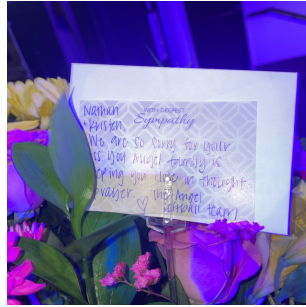 WITH DEEPEST
Sympathy
Nathan
+ Kristen
We are so sorry for your
loss your Angel family is
keeping you close in thought
+ prayer. The Angel
♡ softball team!